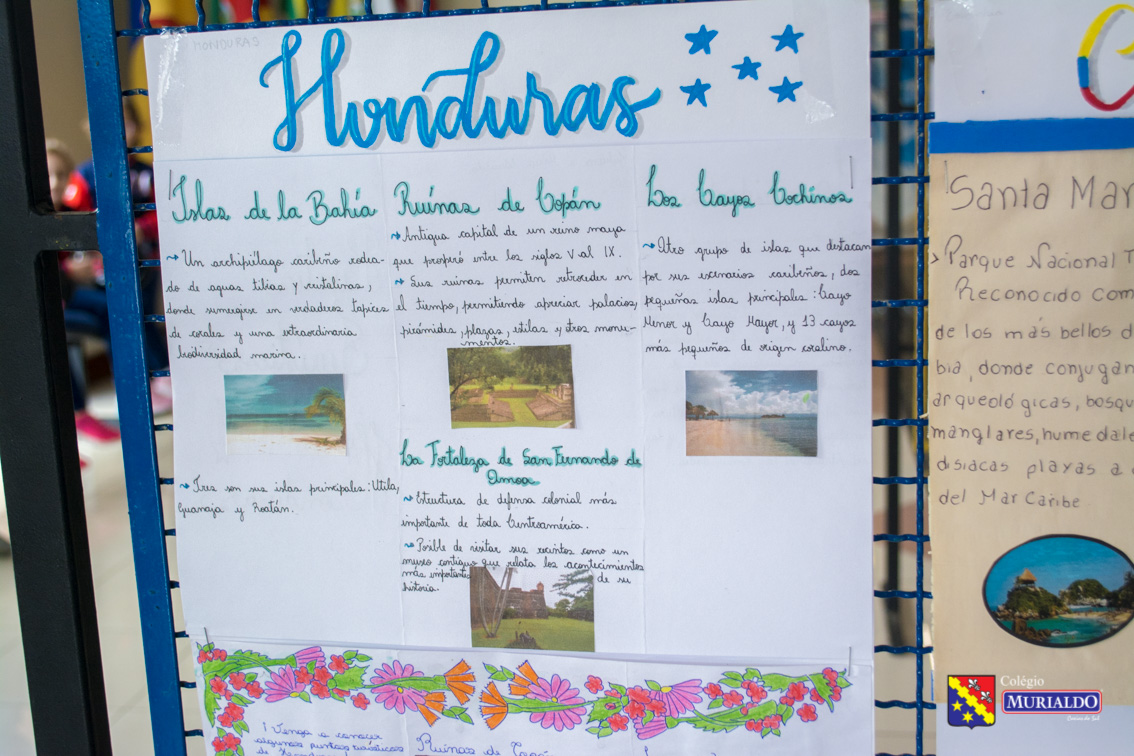 HONDURAS
Honduras
Islas de la Bahía
Un archipiélago caribeño rodea-
do de aguas tibias y cristalinas,
donde sumergirse en verdaderos tapices
de corales y una extraordinaria
biodiversidad marina.
Tres son sus islas principales: Utila,
Guanaja y Roatán.
Ruínas de Copán
Antigua capital de un reino maya
que properó entre los siglos V al IX.
Sus ruinas permiten retroceder en
el tiempo, permitindo apreciar palacios,
pirámides, plazas, estilas y otros monu-
mentos.
La Fortaleza de San Fernando de
Omoa
Estructura de defensa colonial más
importante de toda Centroamérica.
Posible de visitar sus recintos como un
museo contiguo que relata los acontecimientos
más importantes de su
historia.
Los Cayos Cochinos
Otro grupo de islas que destacan
por sus escenarios caribeños, dos
pequeñas islas principales: Cayo
Menor y Cayo Mayor, y 13 cayos
más pequeños de origen coralino.
Venga a conocer
algunos puntos turísticos
de
Ruinas de
C
Santa Mar
Parque Nacional T
Reconocido com
de los más bellos d
bia, donde conjugan
arqueológicas, bosqu
manglares, humedale
disiacas playas a
del Mar Caribe
Colégio
MURIALDO
Caxias do Sul